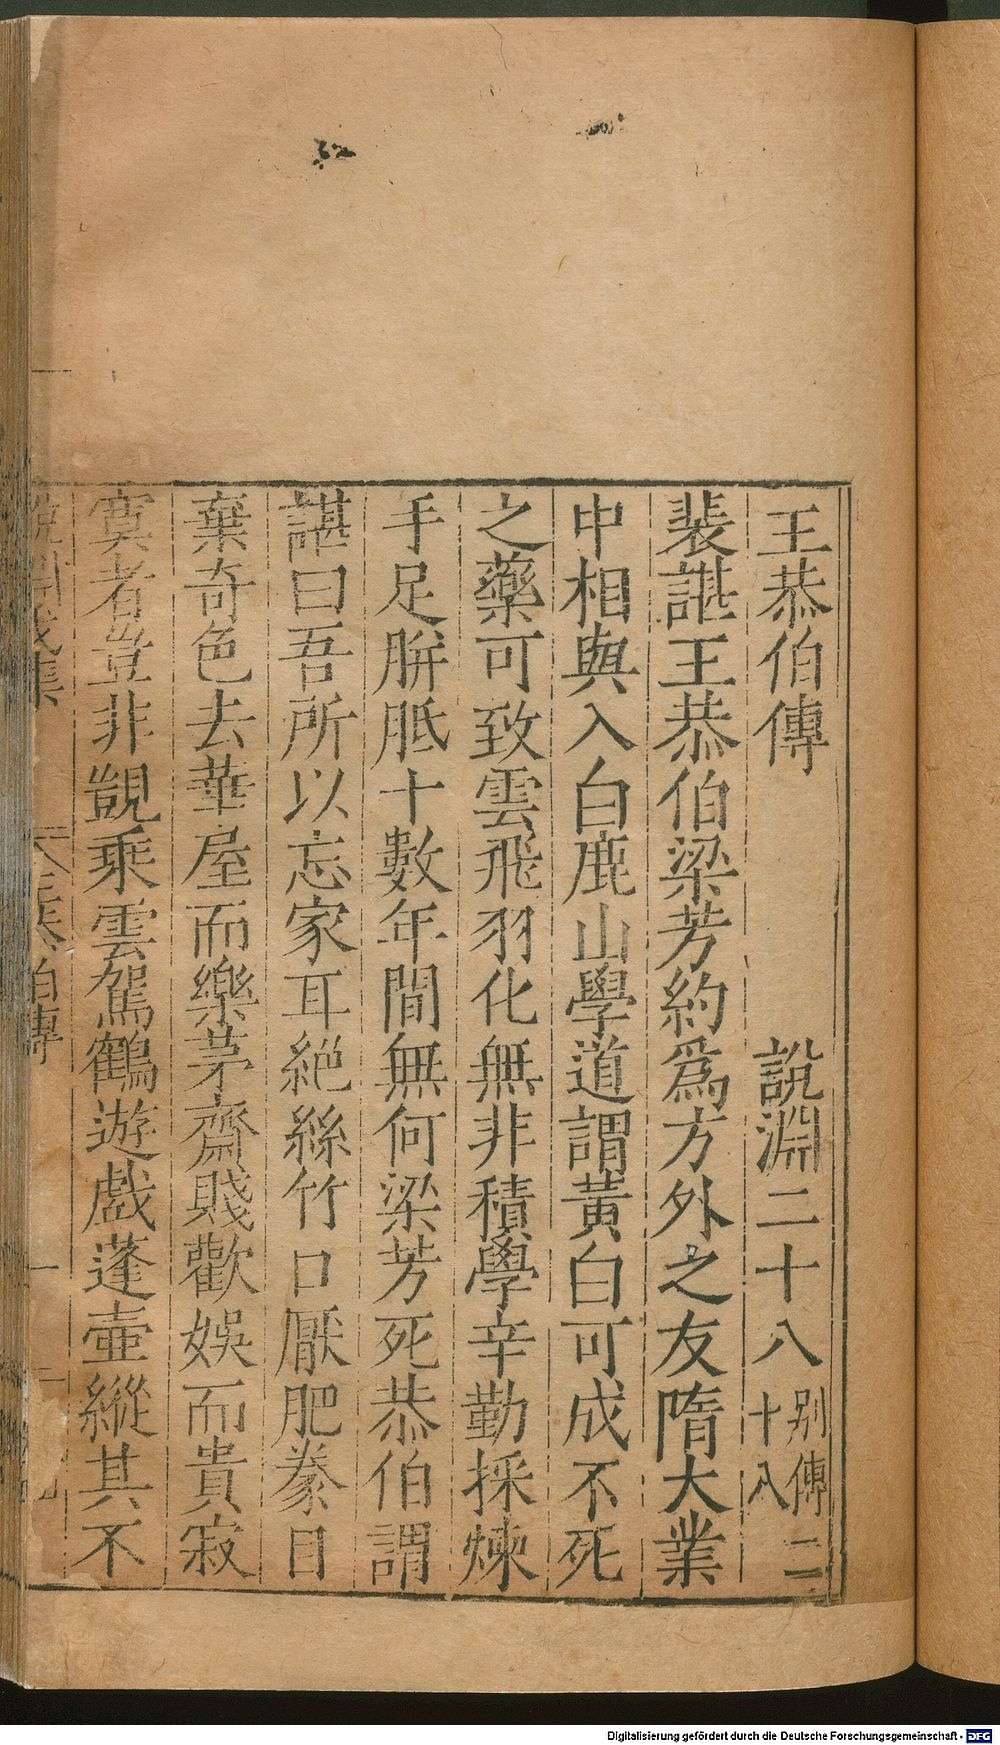 王恭伯傳 說淵二十八 别傳二十八
裴諶王恭伯梁芳約爲方外之友隋大業
中相與入白鹿山學道謂黃白可成不死
之藥可致雲飛羽化無非積學辛勤採煉
手足胼胝十數年間無何梁芳死恭伯謂
諶曰吾所以忘家耳絕絲竹口厭肥豢目
棄奇色去華屋而樂茅齋賤歡娛而貴寂
寞者豈非覬乘雲駕鶴遊戲蓬壷縱其不
Digitalisierung gefördert durch die Deutsche Forschungsgemeinschaft - DFG